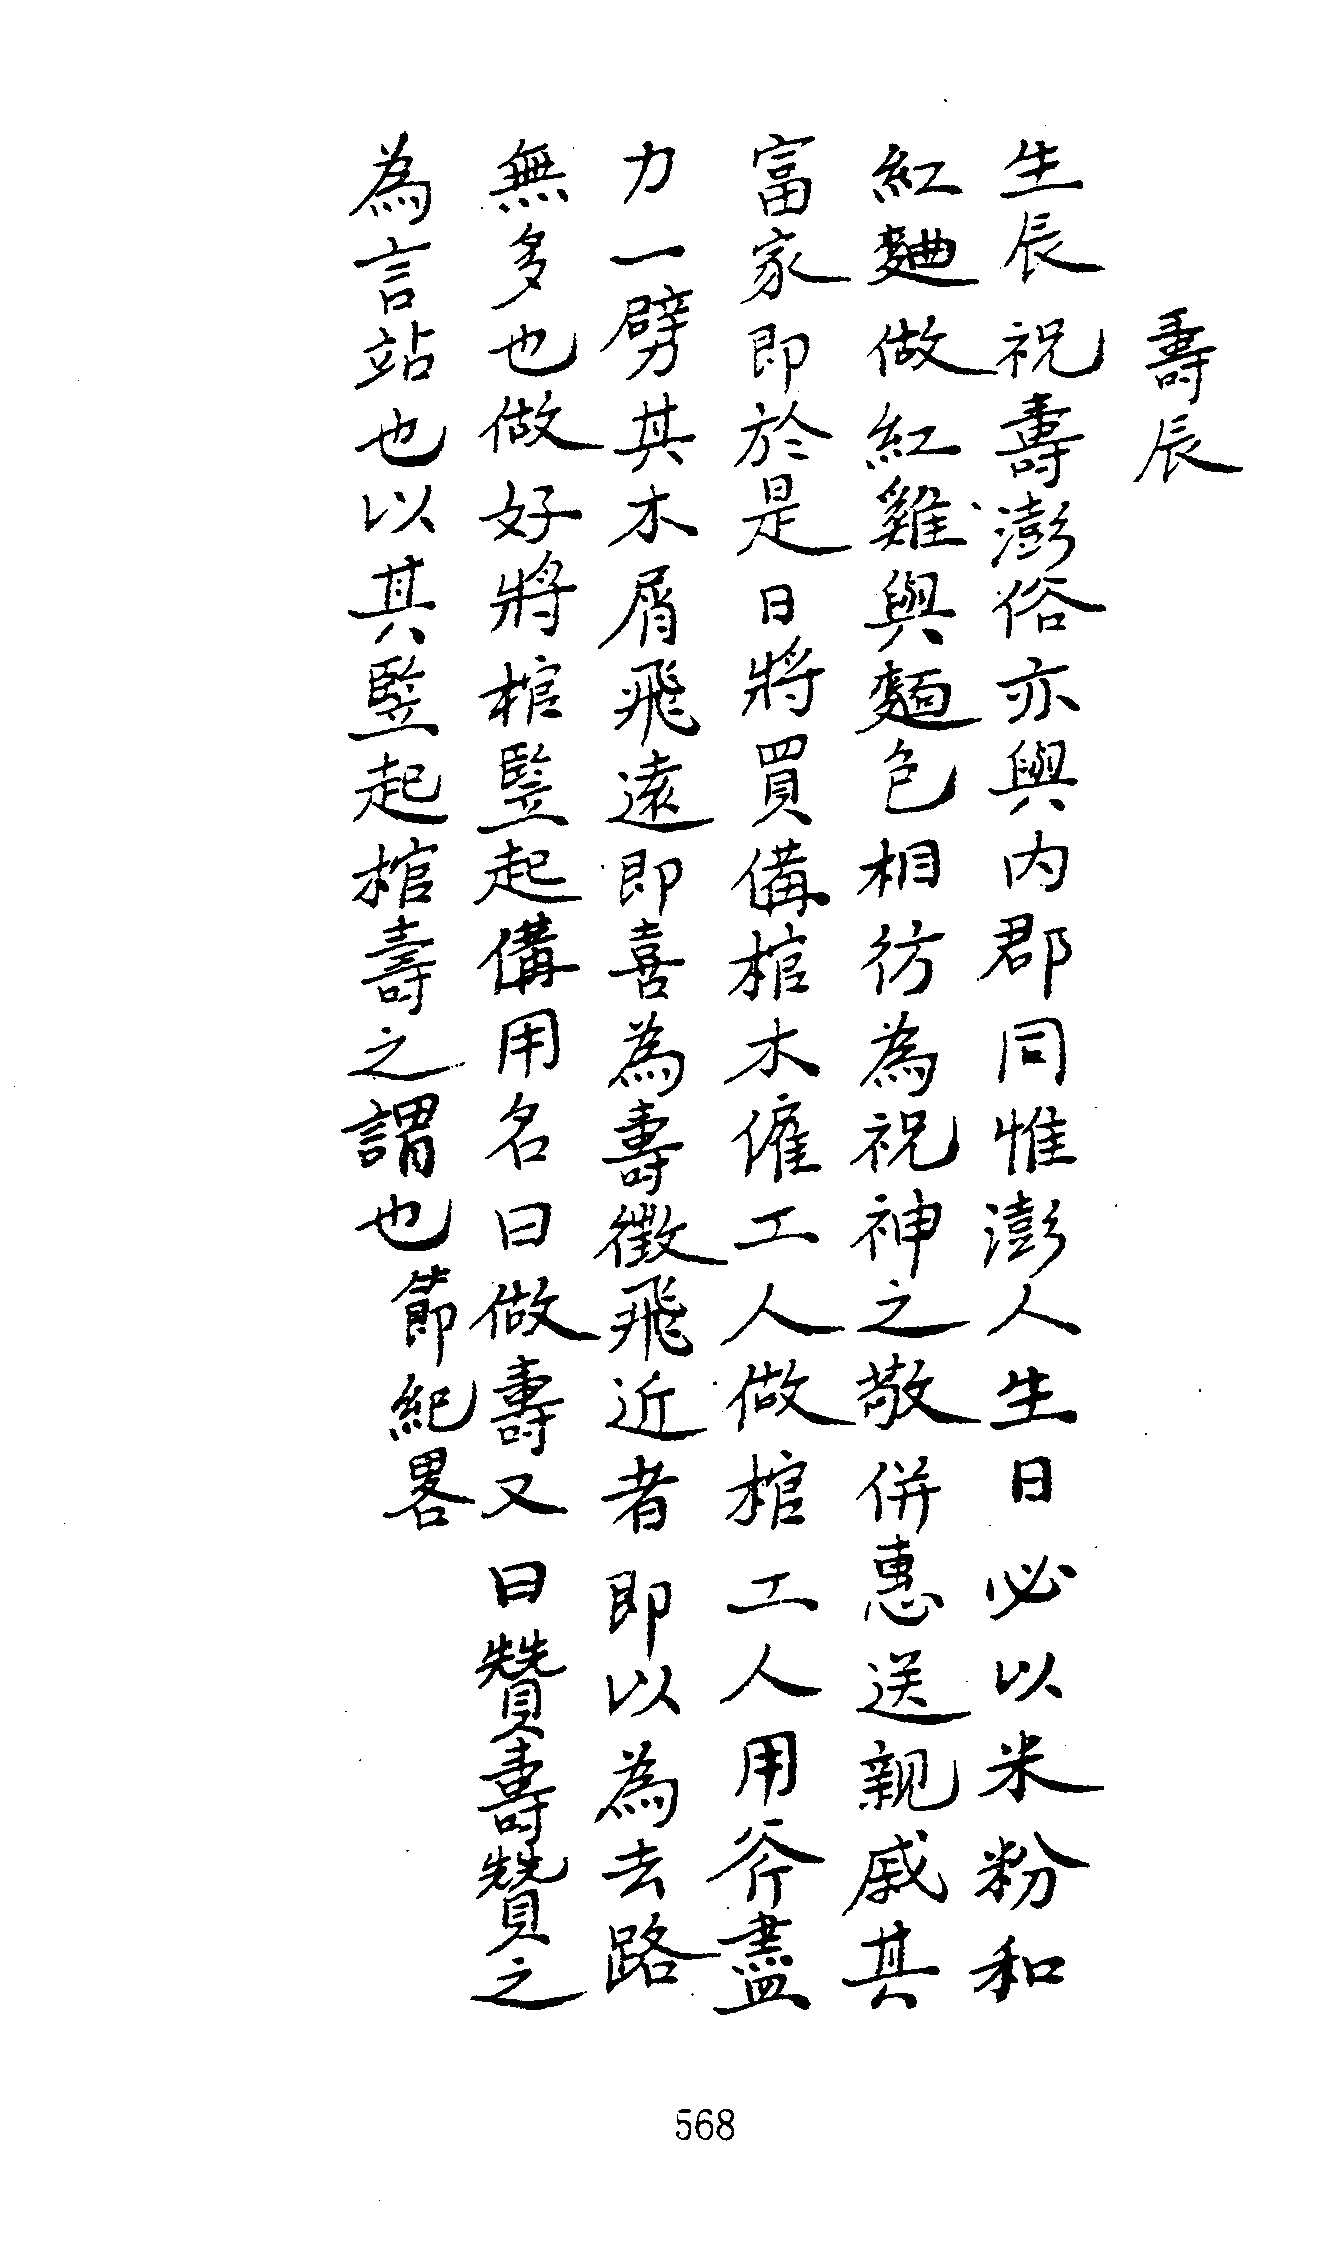 壽辰
生辰祝壽澎俗亦與內郡同惟澎人生日必以米粉和
紅麯做紅雞與麵色相彷為祝神之敬併惠送親戚其
富家即於是日將買備棺木僱工人做棺工人用斧盡
力一劈其木屑飛遠即喜為壽徵飛近者即以為去路
無多也做好將棺豎起備用名曰做壽又曰贊壽贊之
為言站也以其豎起棺壽之謂也節紀畧
568